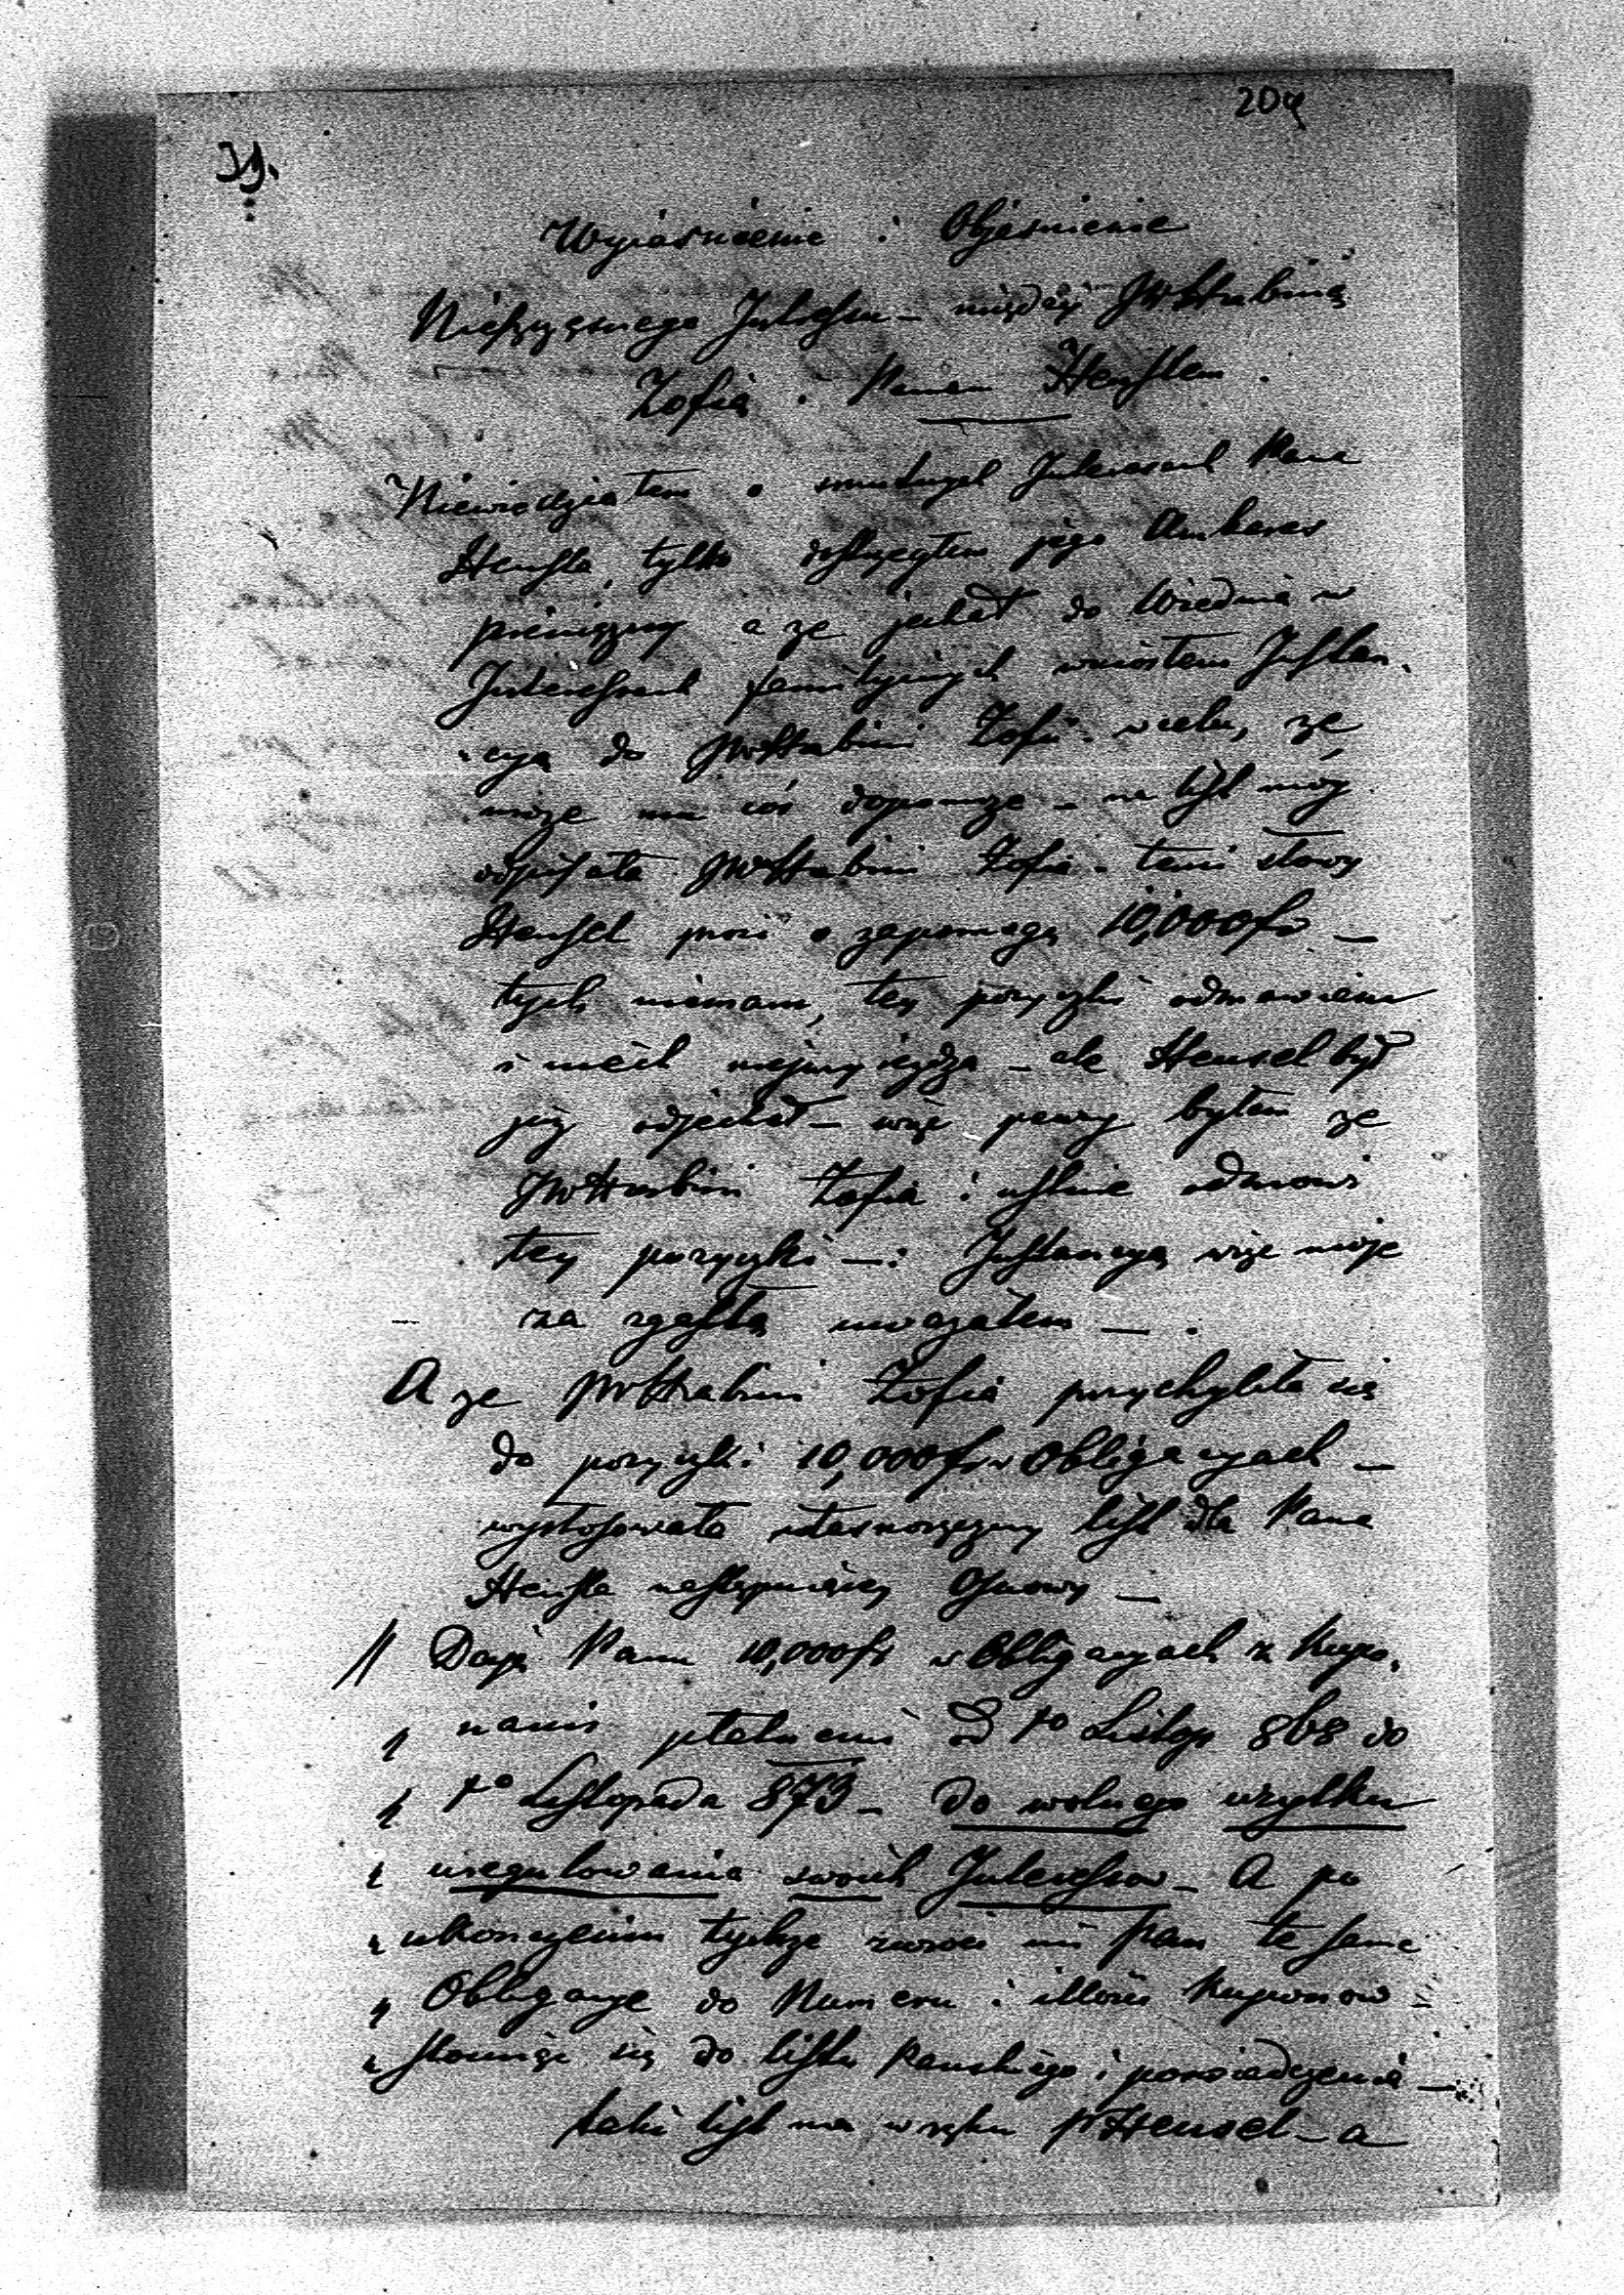 39.
209
Wyiaśnienie i Objaśnienie
Nieszczęsnego Interessu – między JWHrabiną
Zofią i Panem Henslem.
Niewiedziałem o smutnych Interesach Pana
Hensla, tylko dostrzegłem jego Ambaras
pieniężny a że jechał do Wiednia w
Interessach familyinych wniosłem Instan-
cyą do JWHrabini Zofii w celu, że
może mu coś dopomoże – na list mój
odpisała JWHrabini Zofia temi słowy
Hensel prosi o zapomogę 10,000 fr –
tych niemam, tey pożyczki odmawiam
i niech nieprzyiezdza – ale Hensel był
już odjechał – więc pewny byłem że
JWHrabini Zofia i ustnie odmowi
tey pożyczki –: Instancyą więc moje
za zgasłą uważałem – .
A że JWHrabini Zofia przychyliła się
do pożyczki 10,000 fr w Obligacyach –
wystosowała własnoręczny list dla Pana
Hensla następuiącey Osnowy –
// Daję Panu 10,000 fr w Obligacyach z Kupo-
„ nami płatnemi od 1o Listop 868 do
„ 1o Listopada 873 – do wolnego użytku
„ uregulowania swoich Interessow – A po
„ ukonczeniu tychże zwroci mi Pan te same
„ Obligacye do Numeru i illości Kuponow –
„ stosuiąc się do listu Pańskiego i poswiadczenia –
taki list ma w ręku P Hensel – a